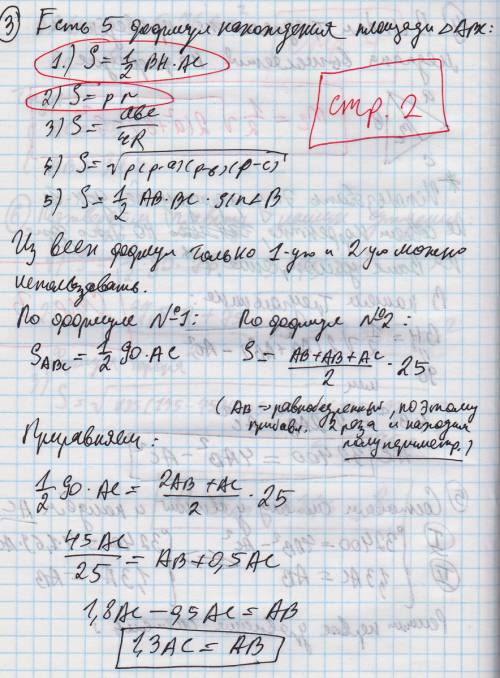 3) Есть 5 формул нахождения площади △АВС:
1.) S = 1/2 BH·AC
2) S = pr
3) S = abc/4R
стр. 2
4) S = √p(p-a)(p-в)(p-c)
5) S = 1/2 AB·BC·sin∠B
Из всех формул только 1-ую и 2-ую можно
использовать.
По формуле №1: По формуле №2:
S_ABC = 1/2 90·AC S = (AB+AB+AC)/2 · 25
(AB - равнобедренный, поэтому
прибавл. 2 раза и находим
полупериметр.)
Приравняем:
1/2 90·AC = (2AB+AC)/2 · 25
45AC/25 = AB+0,5AC
1,8AC - 0,5AC = AB
1,3AC = AB